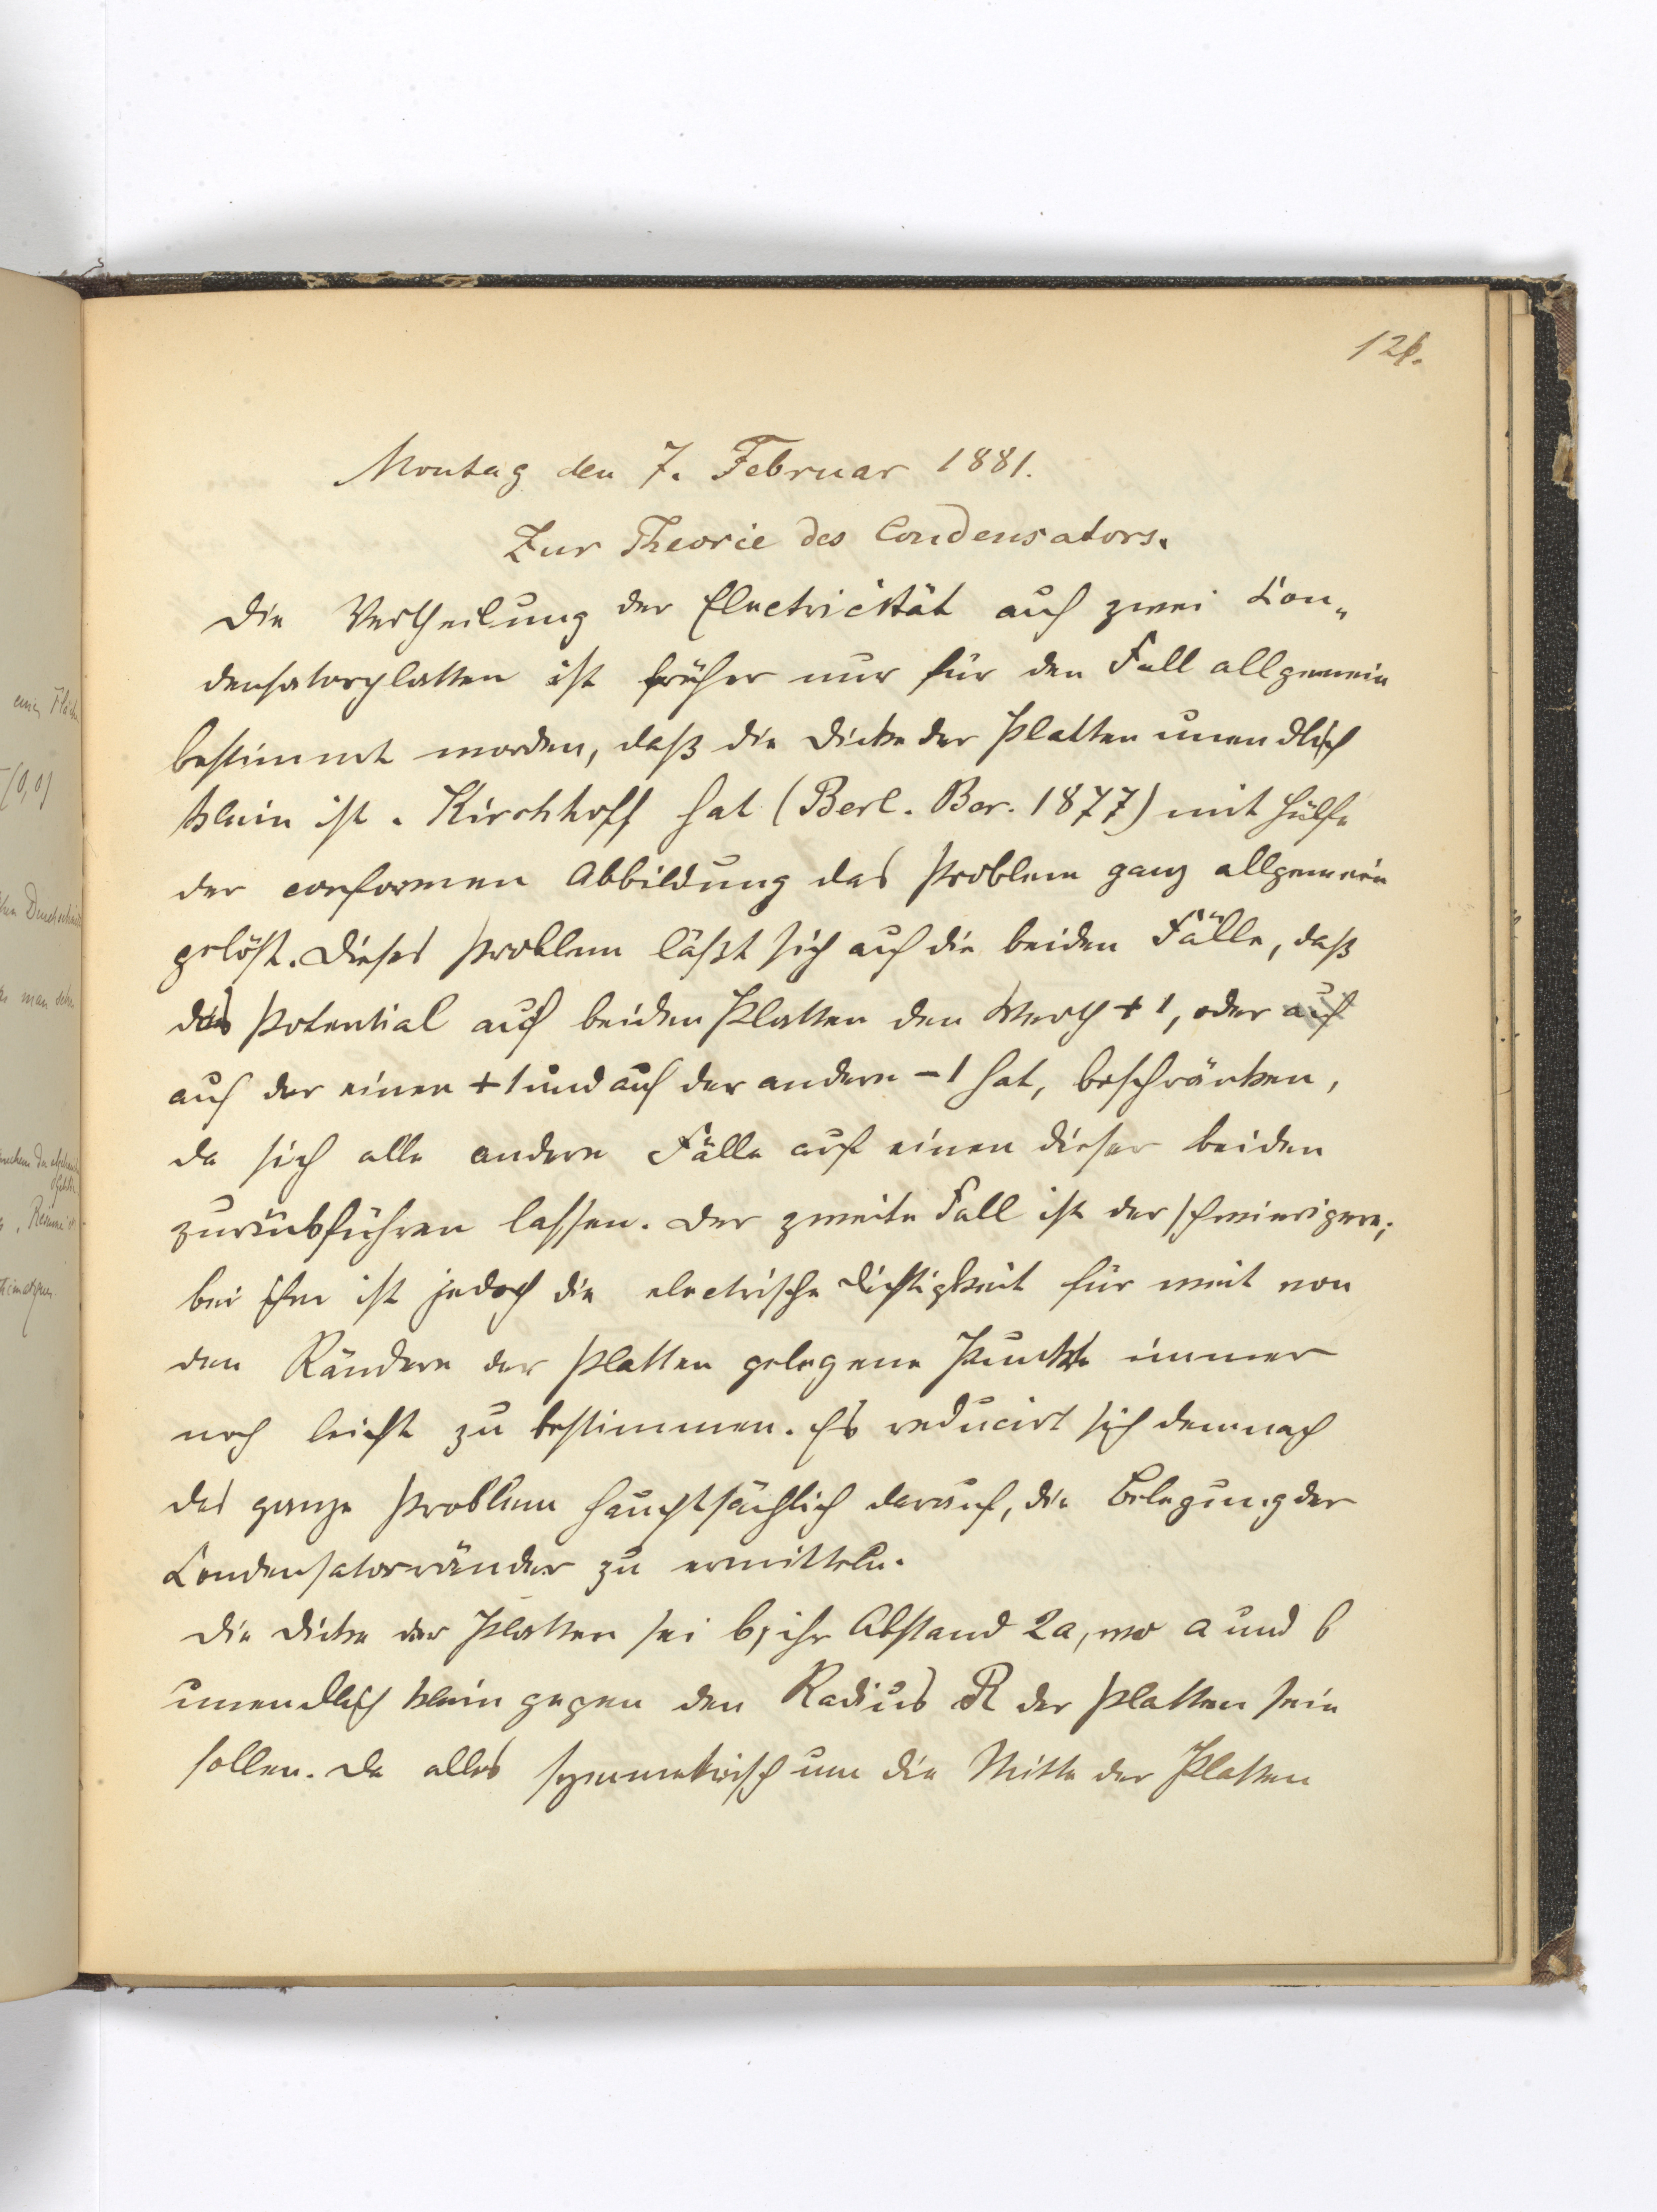 126.
Montag den 7. Februar 1881.
Zur Theorie des Condensators.
Die Vertheilung der Electricität auf zwei Con-
densatorplatten ist früher nur für den Fall allgemein
bestimmt worden, daß die Dicke der Platten unendlich
klein ist. Kirchhoff hat (Berl. Ber. 1877) mit Hülfe
der conformen Abbildung das Problem ganz allgemein
gelöst. Dieses Problem läßt sich auf die beiden Fälle, daß
das Potential auf beiden Platten den Werth + 1, oder auf
auf der einen + 1 und auf der andern - 1 hat, beschränken,
da sich alle andern Fälle auf einen dieser beiden
zurückführen lassen. Der zweite Fall ist der schwierigere;
bei ihm ist jedoch die electrische Dichtigkeit für weit von
den Rändern der Platten gelegene Punkte immer
noch leicht zu bestimmen. Es reducirt sich demnach
das ganze Problem hauptsächlich darauf, die Belegung der
Condensatorränder zu ermitteln.
Die Dicke der Platten sei b, ihr Abstand 2a, wo a und b
unendlich klein gegen den Radius R der Platten sein
sollen. Da alles symmetrisch um die Mitte der Platten
einer Fläche
(0,0)
man